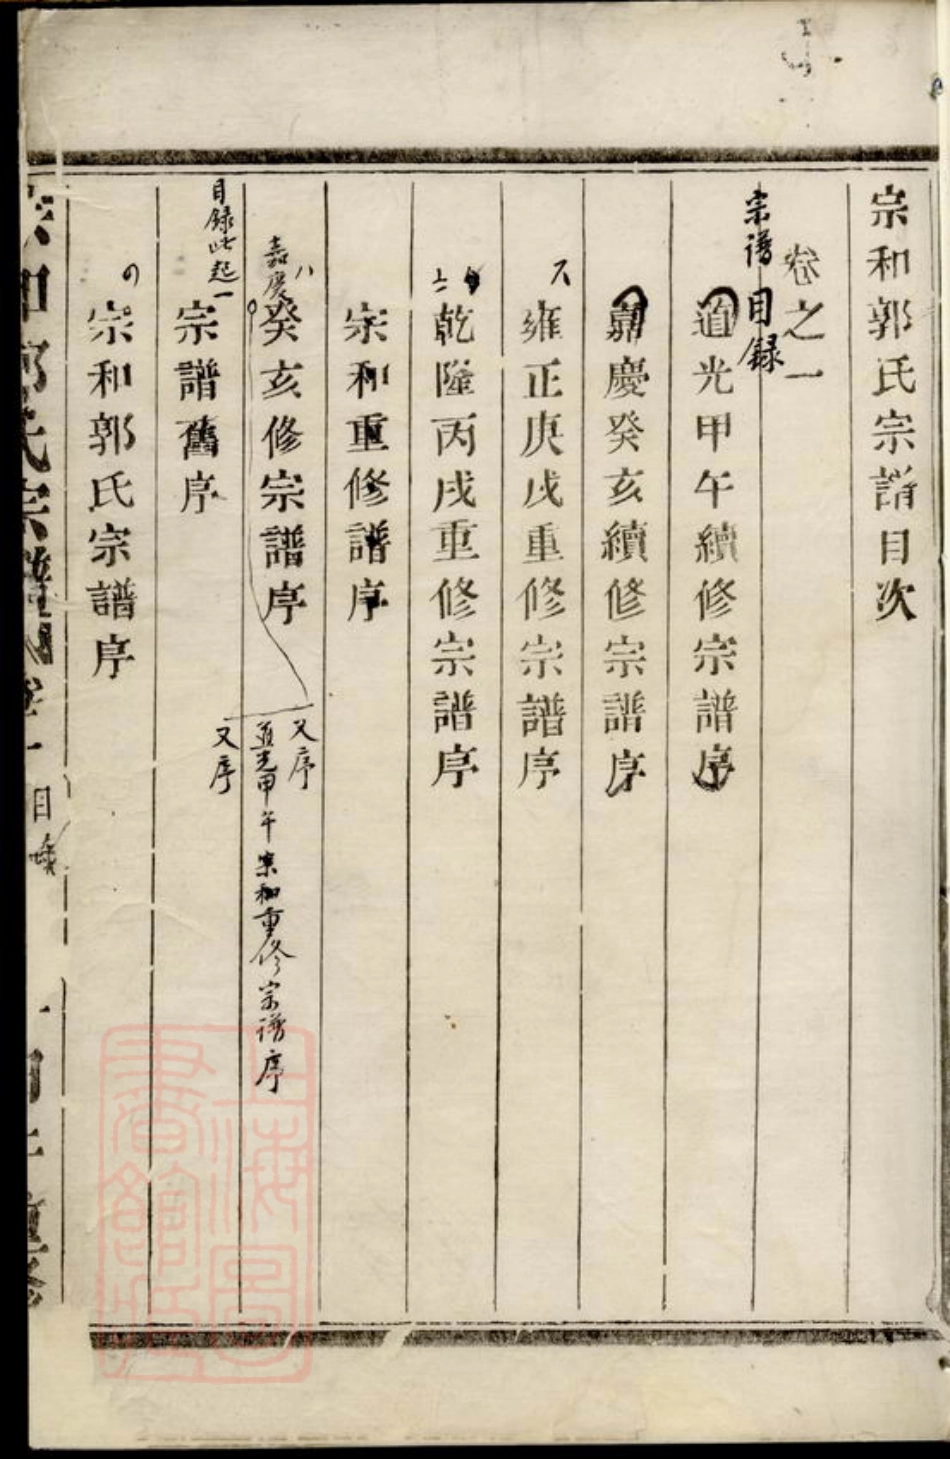 宗和郭氏宗譜目次
卷之一
宗譜目録
道光甲午續修宗譜序
嘉慶癸亥續修宗譜序
雍正庚戌重修宗譜序
乾隆丙戌重修宗譜序
宗和重修譜序
八
嘉慶
癸亥修宗譜序
又序
道光甲午宗和重修宗譜序
又序
目録此起
宗譜舊序
宗和郭氏宗譜序
宗和郭氏宗譜
卷一
目
上海圖書館藏